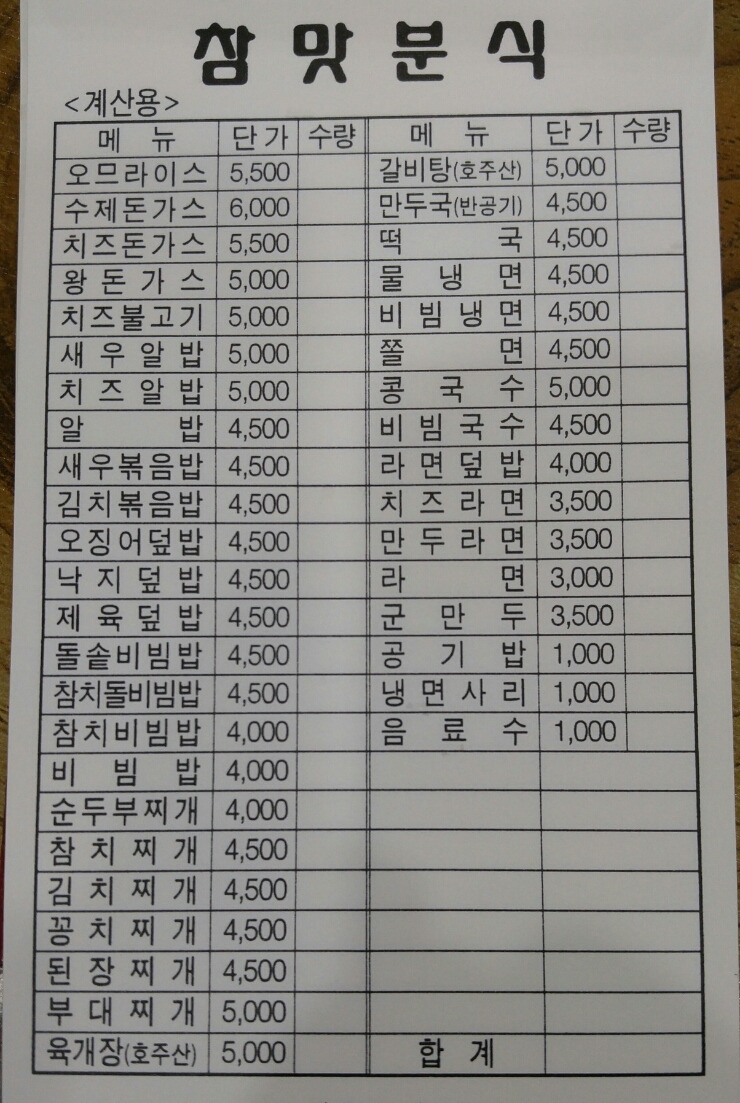 참맛분식
<계산용>
메뉴 단가 수량 메뉴 단가 수량
오므라이스 5,500 갈비탕(호주산) 5,000
수제돈가스 6,000 만두국(반공기) 4,500
치즈돈가스 5,500 떡국 4,500
왕돈가스 5,000 물냉면 4,500
치즈불고기 5,000 비빔냉면 4,500
새우알밥 5,000 쫄면 4,500
치즈알밥 5,000 콩국수 5,000
알밥 4,500 비빔국수 4,500
새우볶음밥 4,500 라면덮밥 4,000
김치볶음밥 4,500 치즈라면 3,500
오징어덮밥 4,500 만두라면 3,500
낙지덮밥 4,500 라면 3,000
제육덮밥 4,500 군만두 3,500
돌솥비빔밥 4,500 공기밥 1,000
참치돌비빔밥 4,500 냉면사리 1,000
참치비빔밥 4,000 음료수 1,000
비빔밥 4,000
순두부찌개 4,000
참치찌개 4,500
김치찌개 4,500
꽁치찌개 4,500
된장찌개 4,500
부대찌개 5,000
육개장(호주산) 5,000 합계